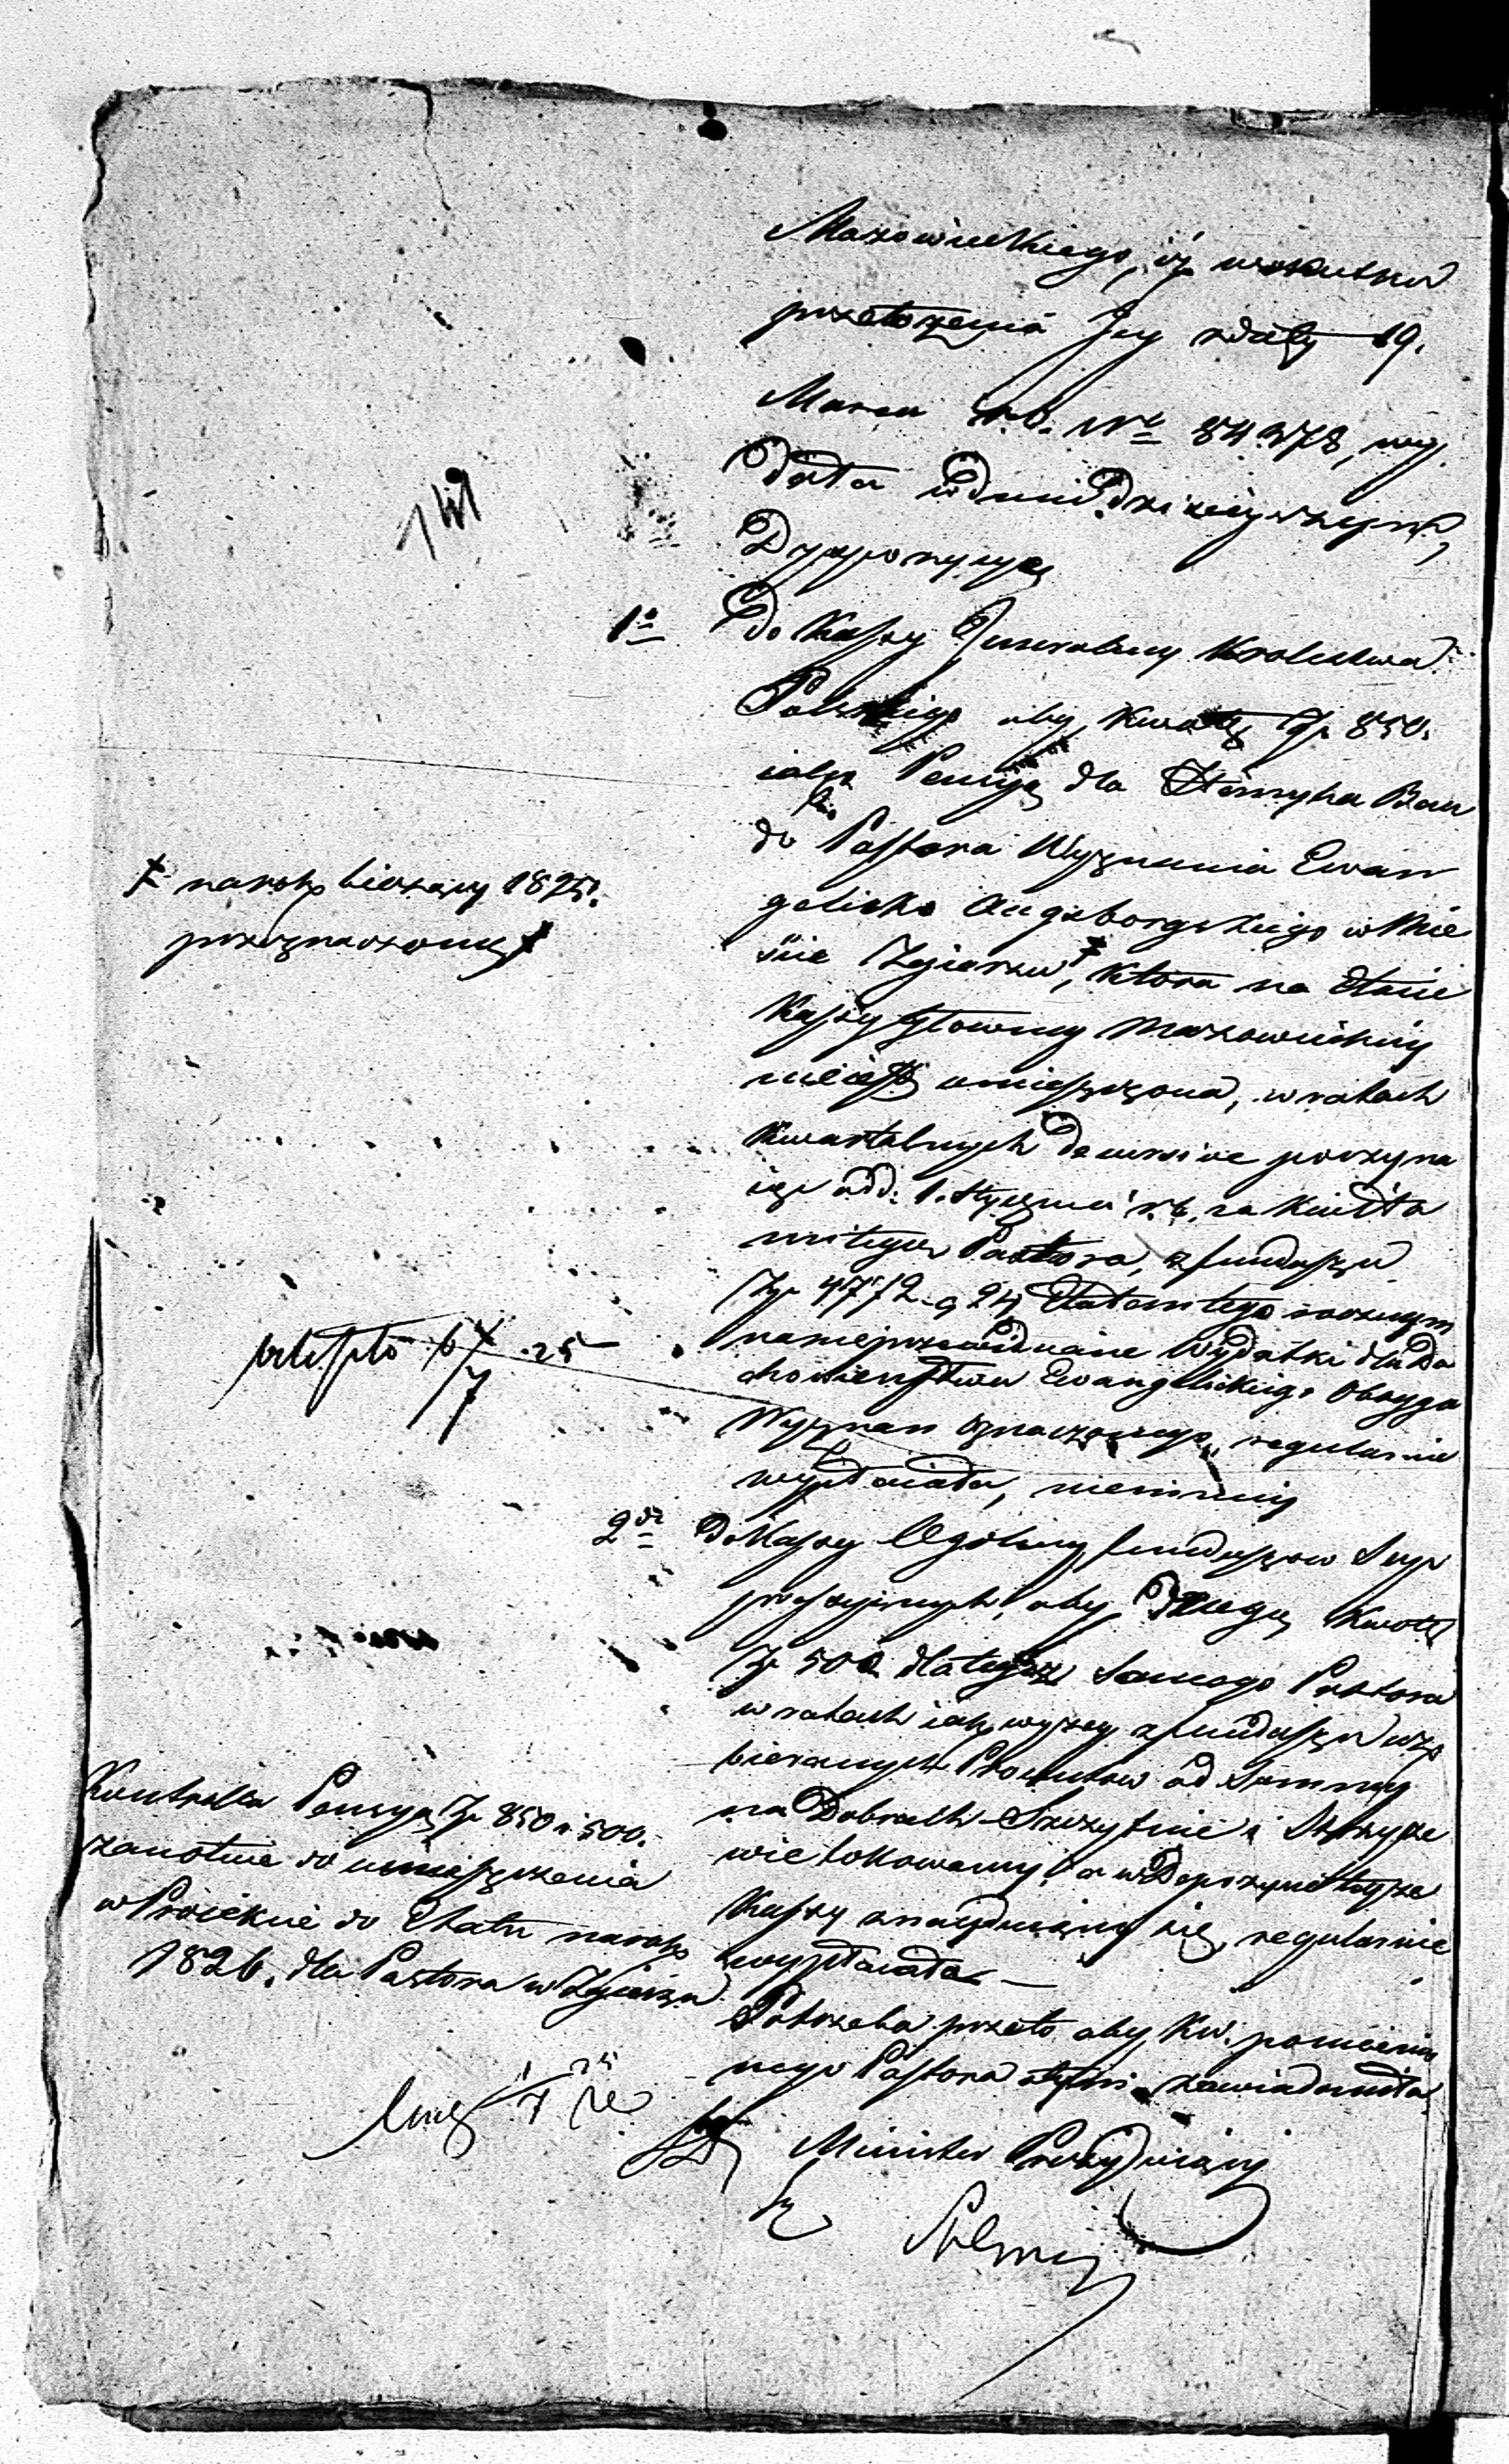 Mazowieckiego, iż wskutku
przełożenia Jey z daty 19.
Marca r.b. Nr 84978, wy
dała w dniu dzisieyszym
Dyspozycyę
1o do Kassy Generalney Krolestwa
Polskiego aby kwotę Zp 850.
iako Pensyą dla Henryka Ben
do Pastora Wyznania Ewan
gelicko Augsborgskiego w Mie
ście Zgierzu, ktora na Etacie
Kassy Głowney Mazowieckiey
nieiest umieszczona, w ratach
kwartalnych decursive poczyna
iąc od d: 1. Stycznia r.b. za kwitta
mi tegoż Pastora, z funduszu
Zp 4772 g 24 Etatem tegorocznym
na nieprzewidziane wydatki dla Du
chowieństwa Ewangelickiego Obojga
Wyznan oznaczonego, regularnie
wypłacała, niemniey
2do Do Kassy Ogólney funduszow Sup
pressyinych, aby drugą kwotę
Zp 500 dla tegoż samego Pastora
w ratach iak wyżey z funduszu
bieranych Procentow od Summy
na Dobrach Szczytnie i
wie lokowaney, a w Depozycie teyże
Kassy znayduiący się, regularnie
wypłacała.
Potrzeba przeto aby Kw. pomienio
nego Pastora o tym zawiadomiła
Minister Prezyduiący
141
‡ na rok bieżący 1825.
przeznaczoną ‡
25
Kontrolla Pensyą Zp 850 i 500.
zanotuie do umieszczenia
w Proiekcie do Etatu na rok
1826. dla Pastora w Zgierzu